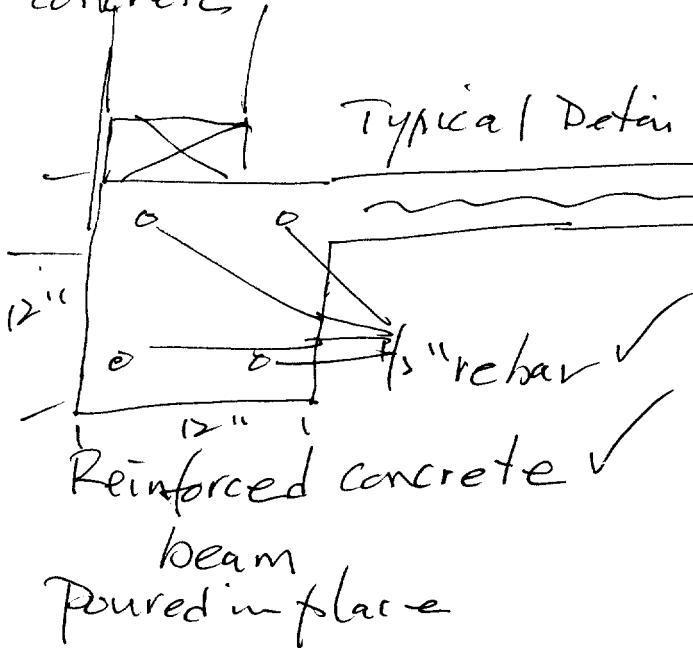 concrete
Typical Detai
12"
"rebar
12"
Reinforced concrete
beam
Poured in place